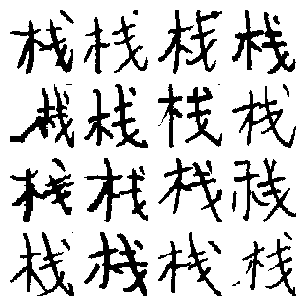 栈栈栈栈
栈栈栈栈
栈栈栈栈
栈栈栈栈